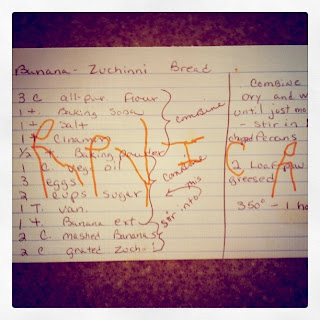 Banana - Zuchinni Bread
3 C. all-pur. flour
1 t. Baking Soda
1 t. Salt
1 t. Cinamon
1/2 t. Baking powder
1 C. veg. oil
3 eggs
2 cups sugar
1 T. van.
1 T. Banana ext.
2 C. mashed Bananas
2 C. grated Zuch.
combine
combine
this
stir into
Combine
dry and w
until just mo
- stir in
chopped pecans
2 Loaf paw
greased
350° - 1 ho